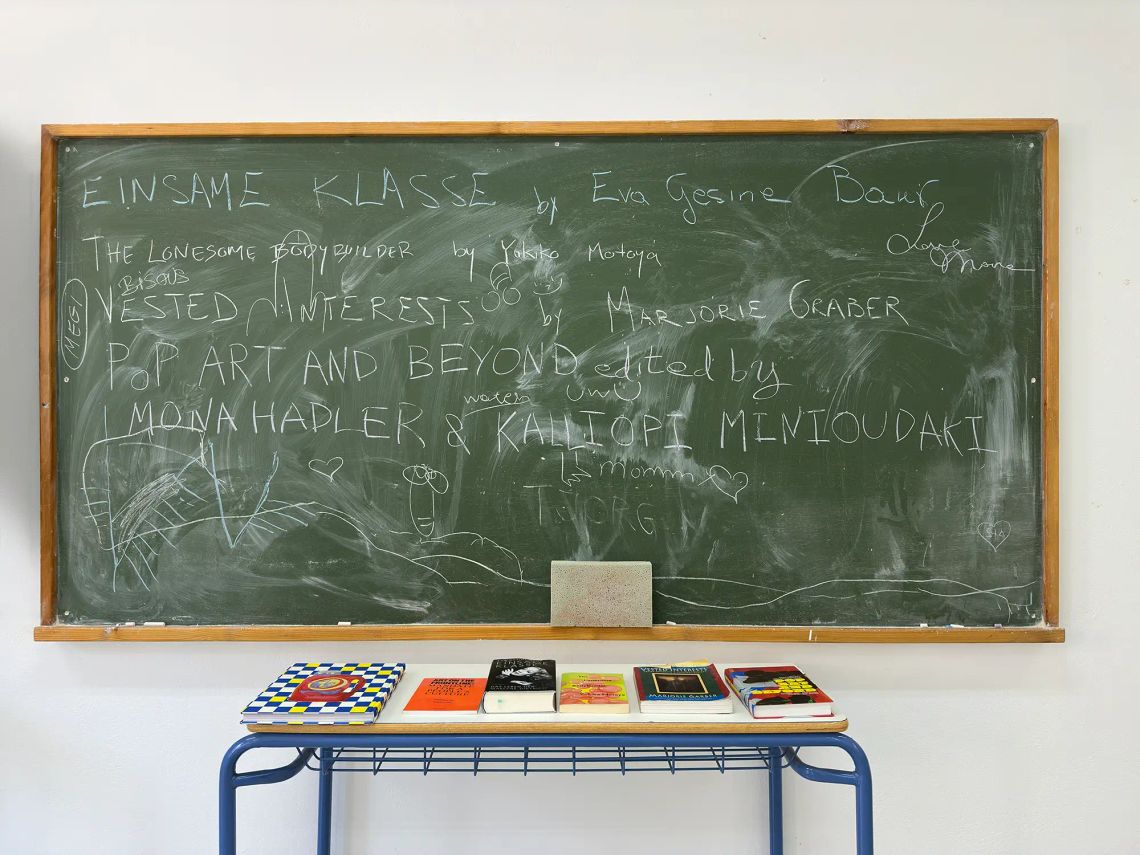 EINSAME KLASSE by Eva Gesine Baur
Love
THE LONESOME BODYBUILDER by Yukiko Motoya
BISOUS
MEG!
VESTED INTERESTS by MARJORIE GRABER
POP ART AND BEYOND edited by
UwU
MONA HADLER & KALLIOPI MINIOUDAKI
mommy
EINSAME
VESTED INTERESTS
MARJORIE GARBER